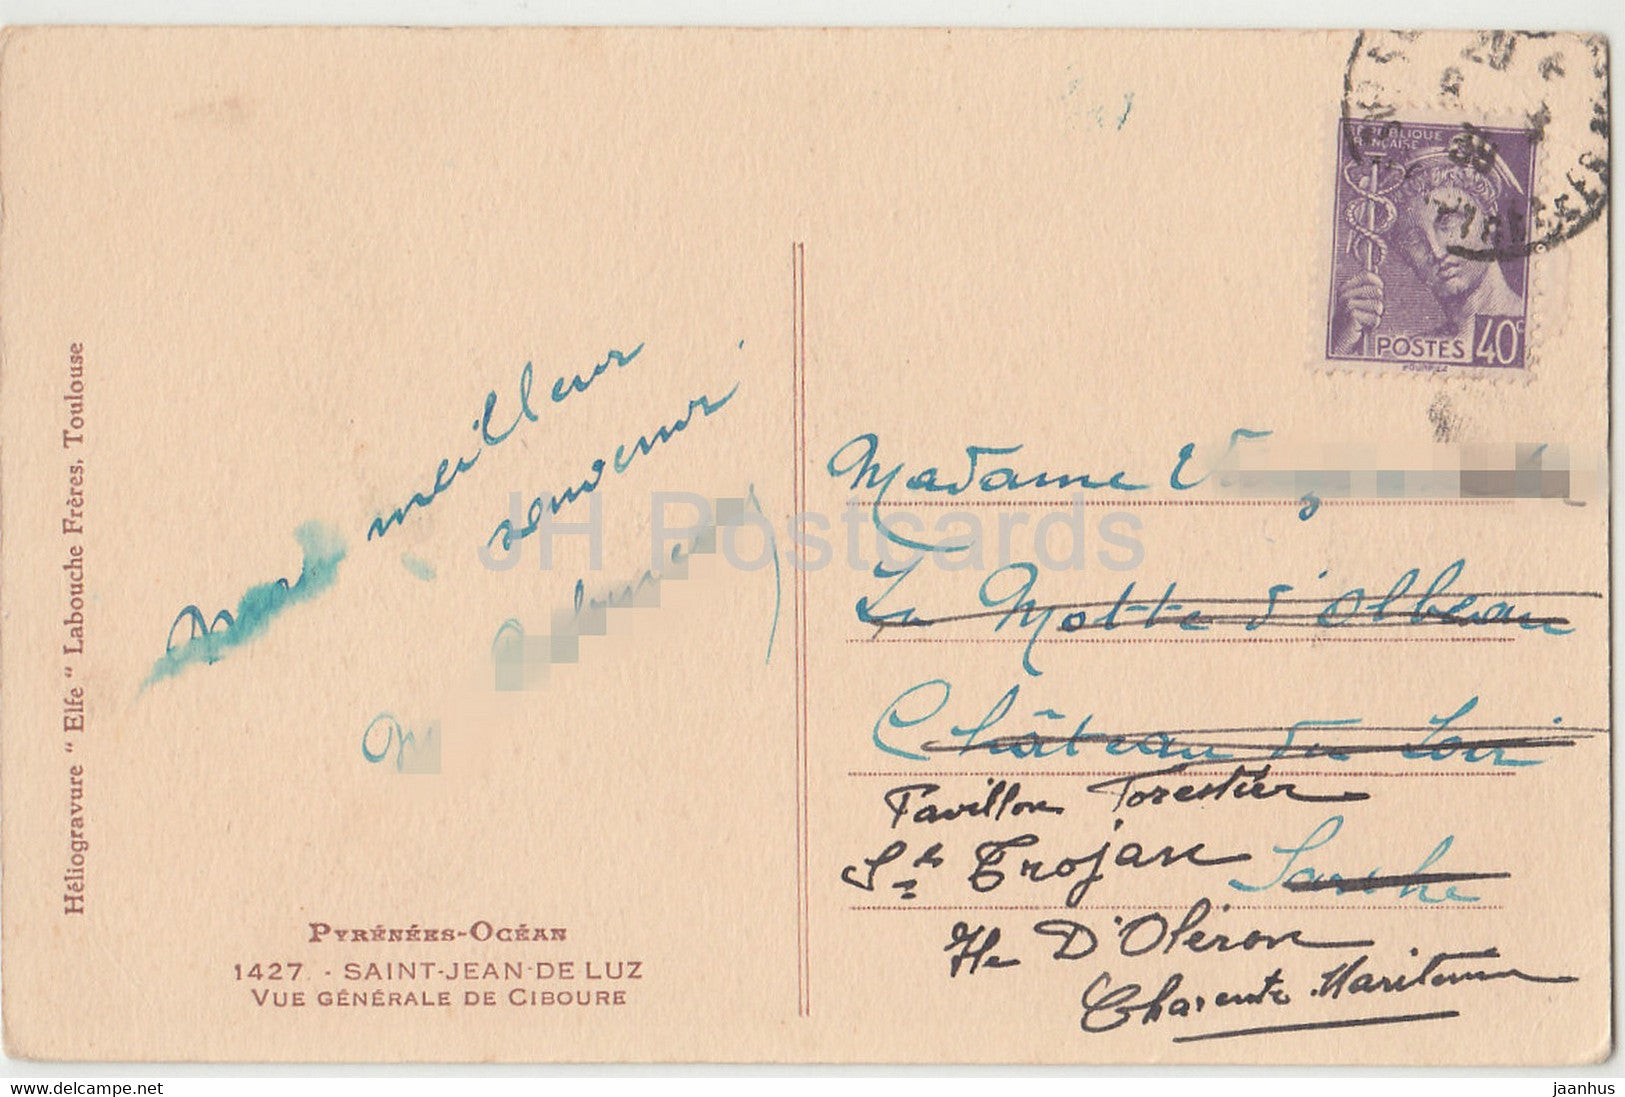 RÉPUBLIQUE
FRANÇAISE
POSTES 40c
Héliogravure " Elfe " Labouche Frères, Toulouse
Mon meilleur
souvenir
Madame
La Motte d'Olbeau
Château du Loir
Pavillon Forestier
St Trojan Sarthe
Ile D'Oléron
Charente Maritime
Pyrénées-Océan
1427. - SAINT-JEAN-DE LUZ
Vue générale de Ciboure
JH Postcards
www.delcampe.net
jaanhus